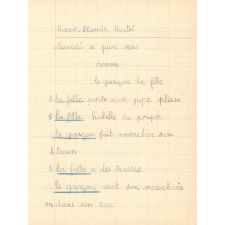 Marie-Claude Martel
Samedi 10 juin
devoir
le garçon la fille
la fille porte une jupe plissé
la fille habille sa poupée
le garçon fait marcher son
train
la fille a des tresses
le garçon met son mouchoir
dans son sac